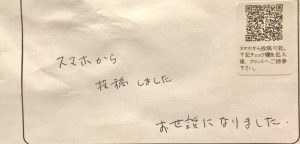 スマホから
投稿しました
お世話になりました.
スマホから投稿可能。
下記チェック欄を記入
後、フロントへご持参
下さい。